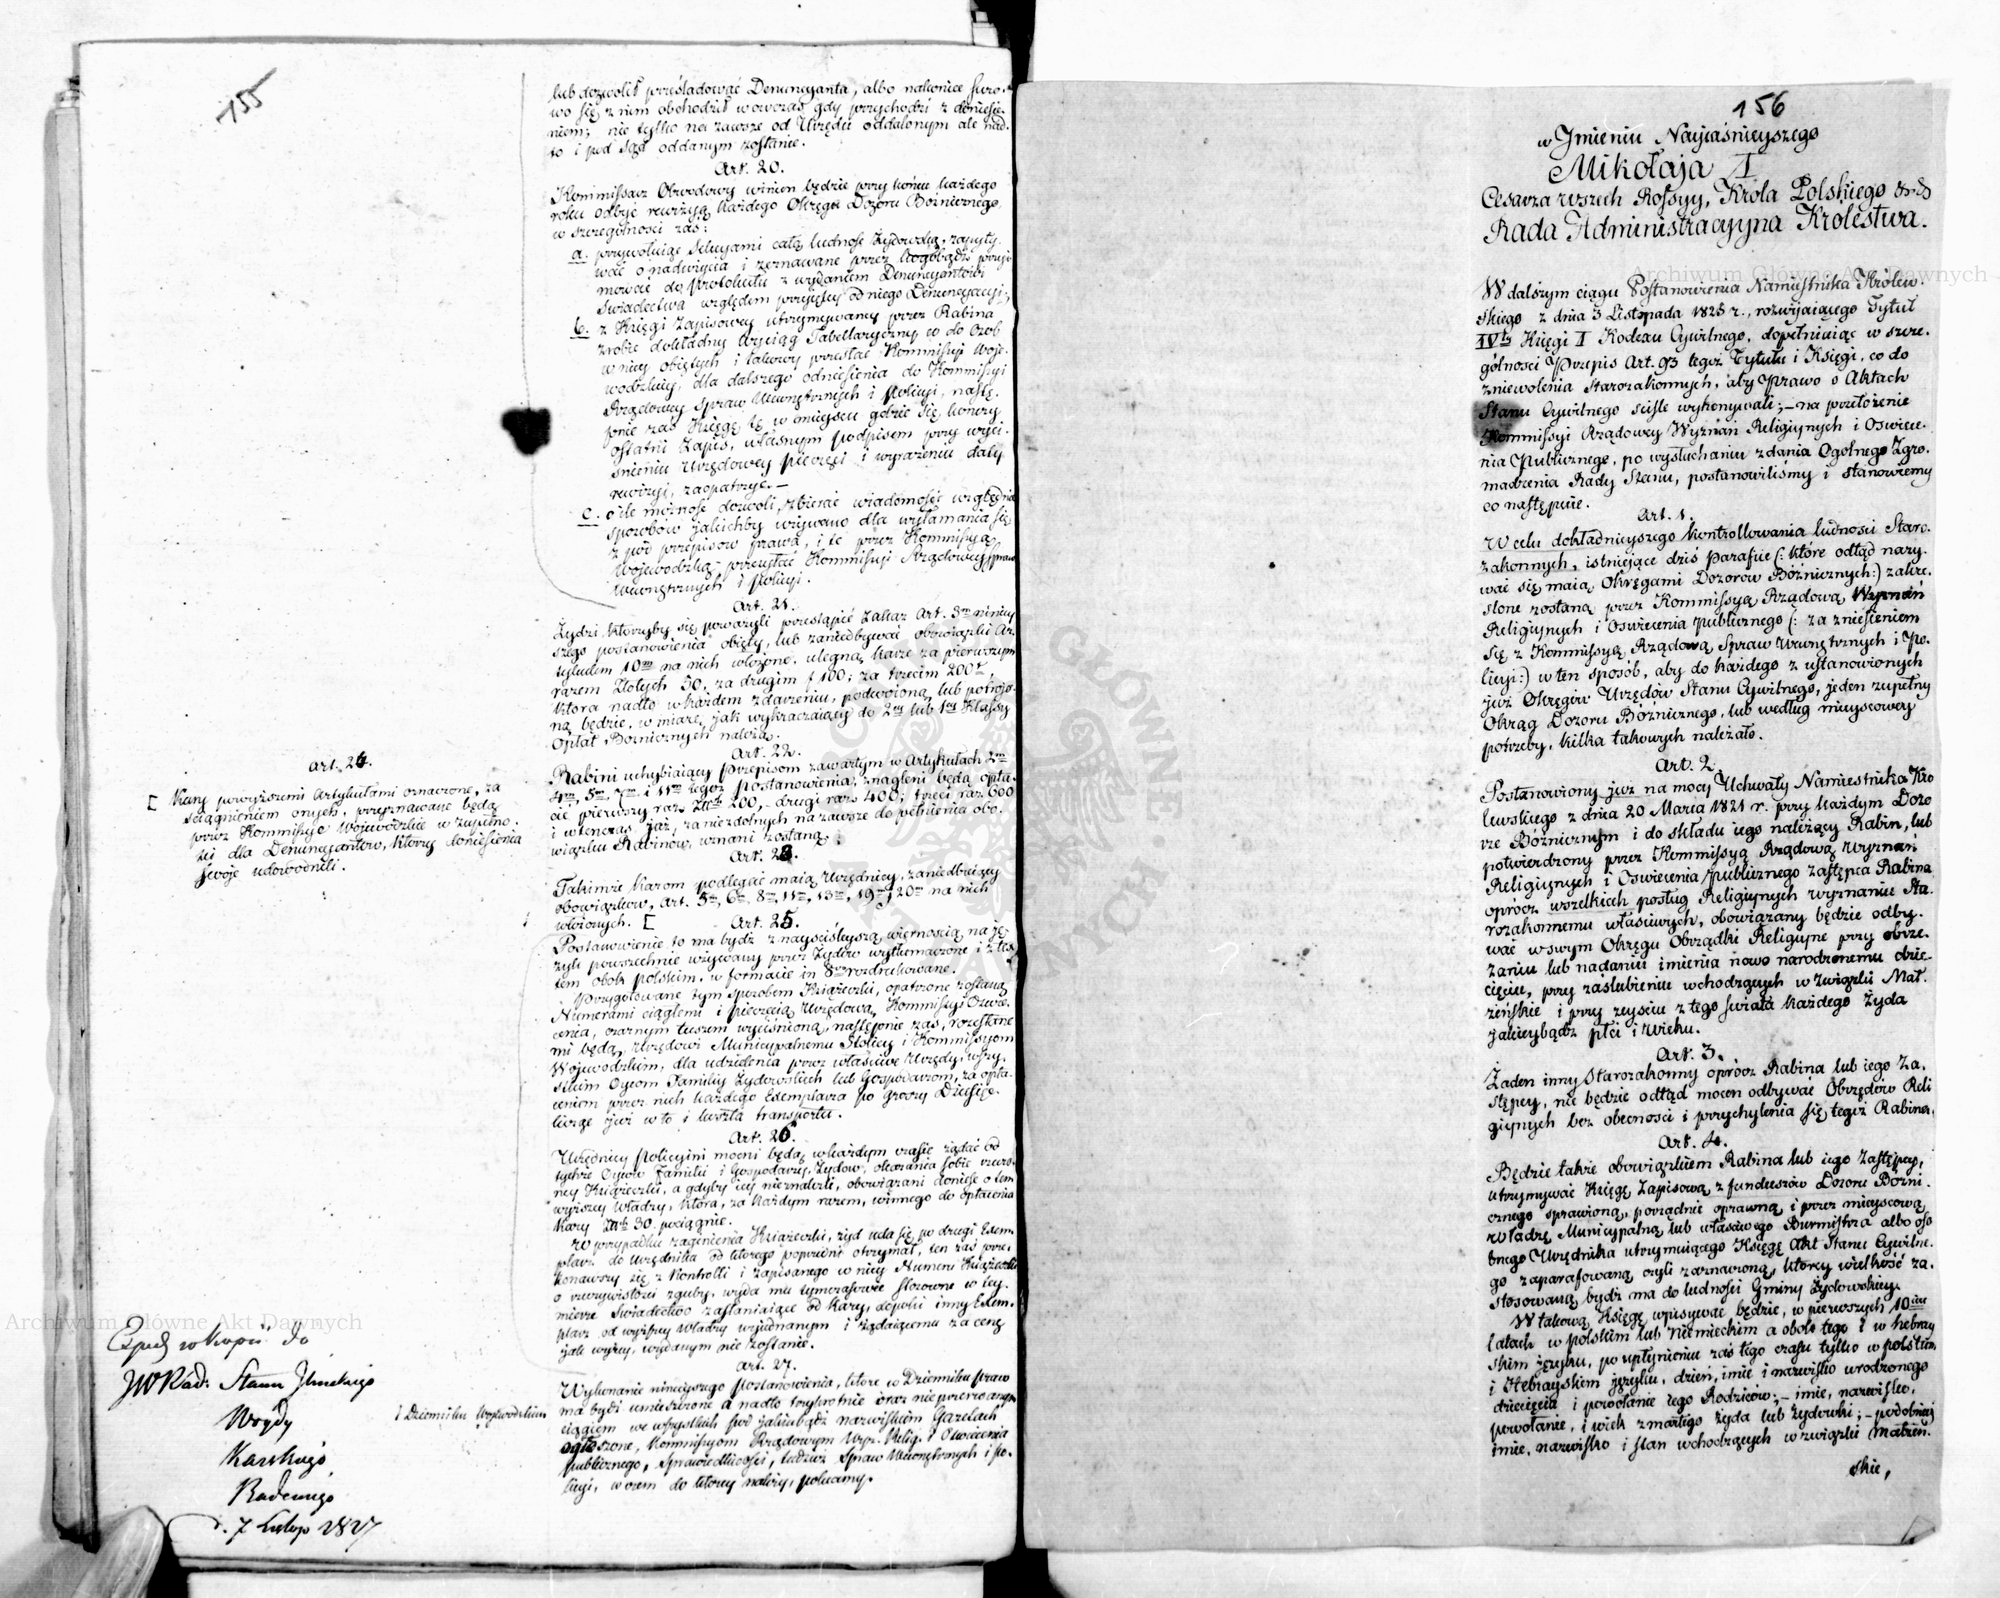 155
lub dozwolił prześladować Denuncyanta, albo nakoniec suro-
wo się z nim obchodził wowczas gdy przychodzi z doniesie-
niem; nie tylko na zawsze od Urzędu oddalonym ale nad-
to i pod sąd oddanym zostanie.
Art. 20.
Kommissarz Obwodowy winien będzie przy końcu każdego
roku odbyć rewizyą każdego Okręgu Dozoru Bożniczego
w szczególności zaś:
a. przywołując sekcyami całą ludność Żydowską, zapyty-
wać o nadużycia i zeznawane przez kogobądź przyj-
mować do protokułu z wydaniem Denuncyantowi
świadectwa względem przyjętey od niego Denuncyacyi;
b. z Księgi zapisowey utrzymywaney przez Rabina
zrobić dokładny wyciąg Tabellaryczny co do osob
w niey objętych i takowy przesłać Kommissyi Woje-
wodzkiey, dla dalszego odniesienia do Kommissyi
Rządowey Spraw Wewnętrznych i Policyi, nastę-
pnie zaś Księgę tę w mieyscu gdzie się kończy
ostatni zapis, własnym podpisem przy wyci-
śnieniu urzędowey pieczęci i wyrażeniu daty
rewizyi, zaopatrzyć.—
c. o ile możność dozwoli, zbierać wiadomość względem
sposobów jakichby używano dla wyłamania się
z pod przepisow prawa, i te przez Kommissyą
Wojewodzką, przesyłać Kommissyi Rządowey Spraw
Wewnętrznych i Policyi.
Art. 21.
Żydzi którzyby się poważyli przestąpić zakaz Art. 3m niniey
szego postanowienia objęty, lub zaniedbywać obowiązki Ar-
tykułem 10m na nich włożone, ulegną karze za pierwszym
razem Złotych 50, za drugim f 100; za trzecim 200
która nadto w każdem zdarzeniu, podwoioną lub potroio-
ną będzie, w miarę, jak wykraczaiący do 2ey lub 1ey Klassy
Opłat Bożniczych należą.
Art. 22.
Rabini uchybiaiący Przepisom zawartym w Artykułach 2m
4m, 5m, 7m i 11m tegoż postanowienia, znagleni będą opła-
cić pierwszy raz Złtch 200,- drugi raz 400; trzeci raz 600
i wtenczas już, za niezdolnych na zawsze do pełnienia obo-
wiązku Rabinow uznani zostaną.
Art. 23.
Takimże karom podlegać maią Urzędnicy, zaniedbuiący
obowiązkow, Art. 5m, 6m, 8m, 11m, 13m, 19m, 20m na nich
włożonych. [
Art. 24.
[ Kary powyższemi Artykułami oznaczone, za
ściągnieniem onych, przyznawane będą
przez Kommissye Wojewodzkie w zupełno-
ści dla Denuncyantow, którzy doniesienia
swoje udowodnili.
Art. 25.
Postanowienie to ma bydź z nayściśleyszą wiernością na ję-
zyk powszechnie używany przez Żydów wytłomaczone i z tex-
tem obok polskim, w formacie in 8vo rozdrukowane.
Przygotowane tym sposobem Książeczki, opatrzone zostaną
Numerami ciągłemi i pieczęcią Urzędową Kommissyi Oswie-
cenia, czarnym tuszem wyciśnioną, następnie zaś, rozesłane
mi będą, Urzędowi Municypalnemu Stolicy i Kommissyom
Wojewodzkim, dla udzielenia przez właściwe Urzędy, wszy-
stkim Oycom Familiy Żydowskich lub Gospodarzom, za opła-
ceniem przez nich każdego Exemplarza po groszy Dziesięć
licząc już w to i koszta transportu.
Art. 26.
Urzędnicy Policyini mocni będą w każdym czasie żądać od
tychże Oycow Familii i Gospodarzy Żydow, okazania sobie rzeczo-
ney Książeczki, a gdyby iey nieznaleźli, obowiązani donieść o tem
wyższey Władzy, która, za każdym razem, winnego do opłacenia
kary Złtch 30. pociągnie.
W przypadku zaginienia Książeczki, żyd uda się po drugi Exem-
plarz do Urzędnika od którego poprzedni otrzymał, ten zaś prze-
konawszy się z Kontrolli i zapisanego w niey Numeru Książeczki
o rzeczywistości zguby, wyda mu tymczasowie stosowne w tey
mierze świadectwo zasłaniaiące od kary, dopoki inny Exem-
plarz od wyższey Władzy wyjednanym i żądaiącemu za cenę
jak wyżey, wydanym nie zostanie.
Art. 27.
Wykonanie ninieyszego postanowienia, które w Dzienniku praw
ma bydź umieszczone a nadto trzykrotnie oraz nieprzerwanym
i Dzienniku Wojewodzkim
ciągiem we wszystkich pod jakimbądź nazwiskiem Gazetach
ogłoszone, Kommissyom Rządowym Wyz. Relig. i Oswiecenia
Publicznego, Sprawiedliwości, tudzież Spraw Wewnętrznych i Po-
licyi, w czem do którey należy, polecamy.
Exped w kopii do
JWRad: Stanu
Woydy
d. 7 Listop 1827
156
w Imieniu Nayjaśnieyszego
Mikołaja I
Cesarza wszech Rossyy, Króla Polskiego &c &c
Rada Administracyyna Krolestwa.
W dalszym ciągu Postanowienia Namiestnika Królew-
skiego z dnia 3 Listopada 1825 r., rozwijaiącego Tytuł
IVty Księgi I Kodexu Cywilnego, dopełniaiąc w szcze-
gólności Przepis Art. 93 tegoż Tytułu i Księgi, co do
zniewolenia Starozakonnych, aby Prawo o Aktach
Stanu Cywilnego ściśle wykonywali;— na przełożenie
Kommissyi Rządowey Wyznań Religiynych i Oświece-
nia Publicznego, po wysłuchaniu zdania Ogolnego Zgro-
madzenia Rady Stanu, postanowiliśmy i stanowiemy
co następuie.
Art. 1.
W celu dokładnieyszego kontrollowania ludności Staro-
zakonnych, istniejące dziś parafie (: które odtąd nazy-
wać się maią, Okręgami Dozorow Bóżniczych:) zakre-
slone zostaną przez Kommissyą Rządową Wyznań
Religiynych i Oswiecenia Publicznego (: za zniesieniem
się z Kommissyą Rządową Spraw Wewnętrznych i Po-
licyi:) w ten sposób, aby do każdego z ustanowionych
już Okręgów Urzędów Stanu Cywilnego, jeden zupełny
Okrąg Dozoru Bóżniczego, lub według mieyscowey
potrzeby, kilka takowych należało.
Art. 2.
Postanowiony już na mocy Uchwały Namiestnika Kro
lewskiego z dnia 20 Marca 1821 r. przy każdym Dozo
rze Bóżniczym i do składu jego należący Rabin, lub
potwierdzony przez Kommissyą Rządową Wyznań
Religiynych i Oswiecenia Publicznego zastępca Rabina
oprócz wszelkich posług Religiynych wyznaniu Sta-
rozakonnemu właściwych, obowiązany będzie odby-
wać w swym Okręgu Obrządki Religiyne przy obrze-
zaniu lub nadaniu imienia nowo narodzonemu dzie-
cięciu, przy zaślubieniu wchodzących w związki Mał-
żeńskie i przy zeyściu z tego świata każdego Żyda
jakieybądź płci i wieku.
Art. 3.
Żaden inny Starozakonny oprócz Rabina lub iego Za-
stępcy, nie będzie odtąd mocen odbywać Obrzędów Reli
giynych bez obecności i przychylenia się tegoż Rabina.
Art. 4.
Będzie także obowiązkiem Rabina lub iego Zastępcy,
utrzymywać Księgę Zapisową z funduszów Dozoru Bożni-
cznego sprawioną, porządnie oprawną i przez mieyscową
władzę Municypalną lub właściwego Burmistrza albo oso
bnego Urzędnika utrzymuiącego Księgę Akt Stanu Cywilne-
go zaparafowaną czyli zaznaczoną, którey wielkość za-
stosowaną bydź ma do ludności Gminy Żydowskiey.
W takową Księgę wpisywać będzie, w pierwszych 10ciu
latach w polskim lub Niemieckim a obok tego i w hebray
skim języku, po upłynieniu zaś tego czasu tylko w polskim
i Hebrayskiem języku, dzień, imie i nazwisko urodzonego
dziecięcia i powołanie iego Rodziców;— imie, nazwisko,
powołanie, i wiek zmarłego żyda lub żydowki;— podobnież
imie, nazwisko i stan wchodzących w związki Małżeń-
skie,
Archiwum Główne Akt Dawnych
Archiwum Główne Akt Dawnych